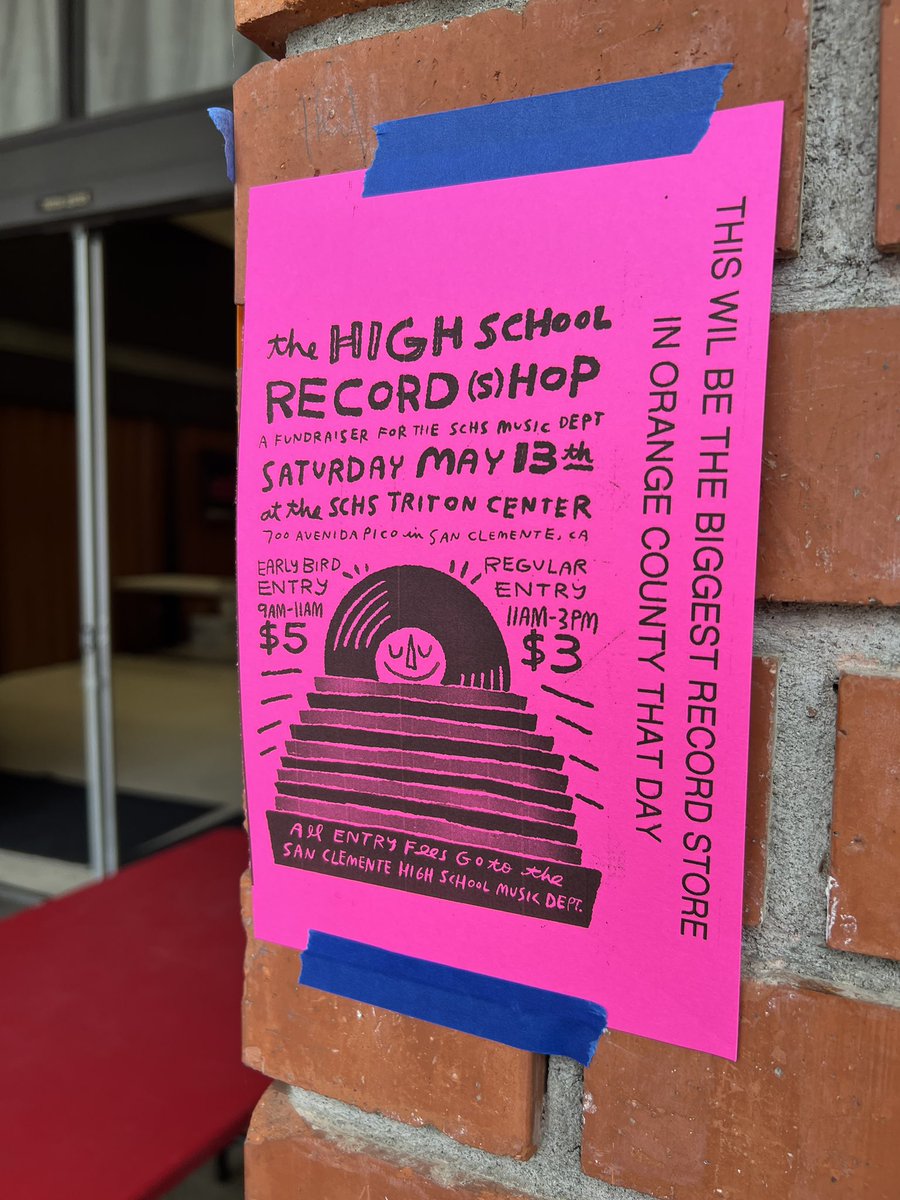 the HIGH SCHOOL
RECORD (S)HOP
A FUNDRAISER FOR THE SCHS MUSIC DEPT
SATURDAY MAY 13th
at the SCHS TRITON CENTER
700 AVENIDA PICO in SAN CLEMENTE, CA
EARLY BIRD
ENTRY
9AM-11AM
$5
REGULAR
ENTRY
11AM-3PM
$3
All ENTRY FEES GO to the
SAN CLEMENTE HIGH SCHOOL MUSIC DEPT.
THIS WIL BE THE BIGGEST RECORD STORE
IN ORANGE COUNTY THAT DAY